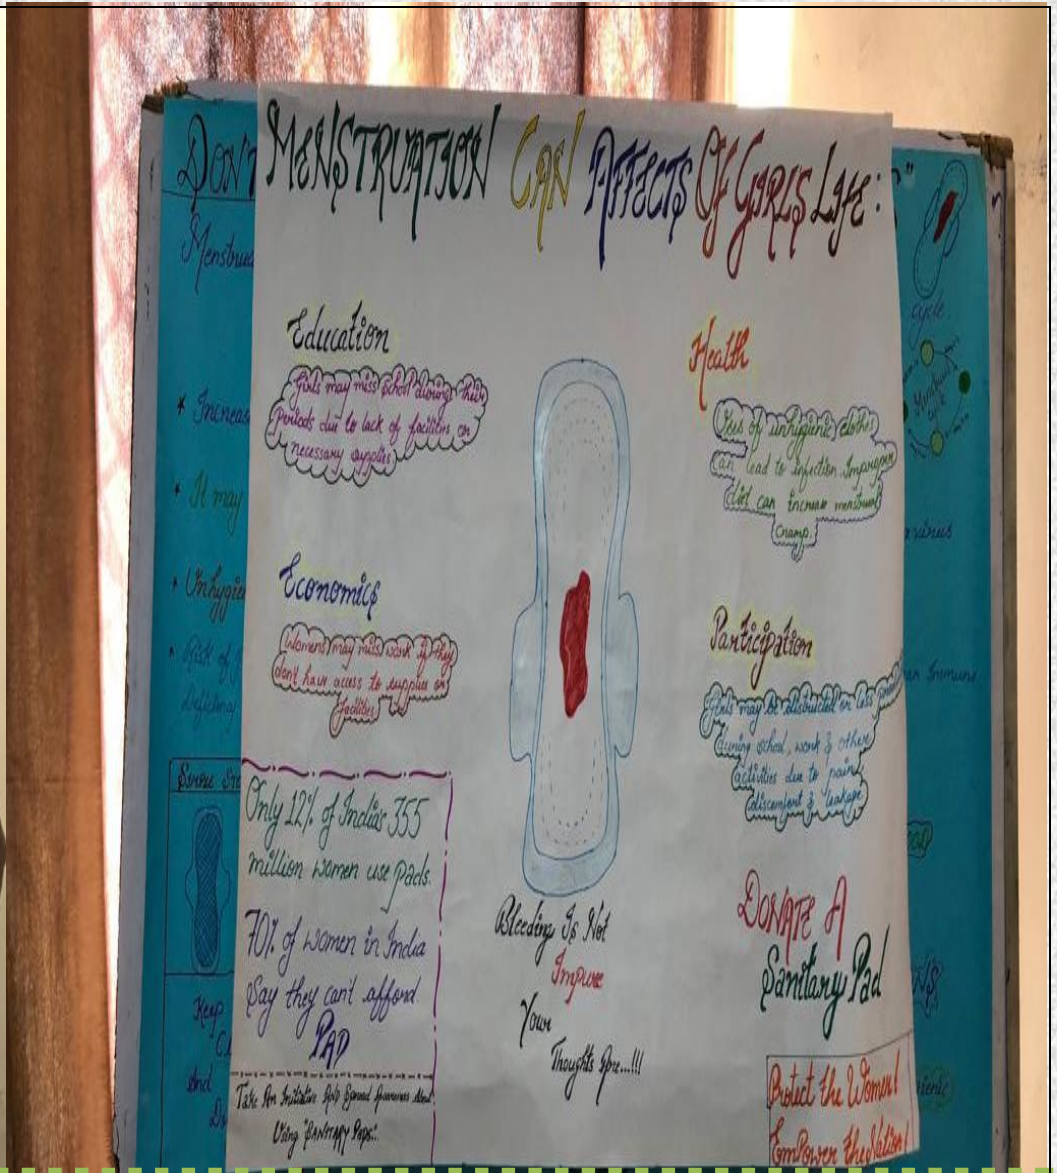 MENSTRUATION CAN AFFECTS OF GIRLS LIFE:
Education
Girls may miss school during their
Periods due to lack of facilities or
necessary supplies
Economics
Womens may miss work if they
don't have access to supplies or
facilities
Only 12% of India's 355
million women use pads.
70% of women in India
Say they can't afford
PAD
Take An Initiative And Spread Awareness About
Using "SANITARY PADS".
Bleeding Is Not
Impure
Your
Thoughts Are...!!!
Health
Uses of unhygienic clothes
Can lead to infection. Improper
diet can increase menstrual
cramp.
Participation
Girls may be distructed or less
during school, work & other
activities due to pain,
discomfort & leakage
DONATE A
Sanitary Pad
Protect the Women!
EmPower the Nation!
DON'T
Menstrua
* Increas
* It may
* Unhygie
* Risk of
Keep
And
cycle.
Menstrual
cycle
Immune